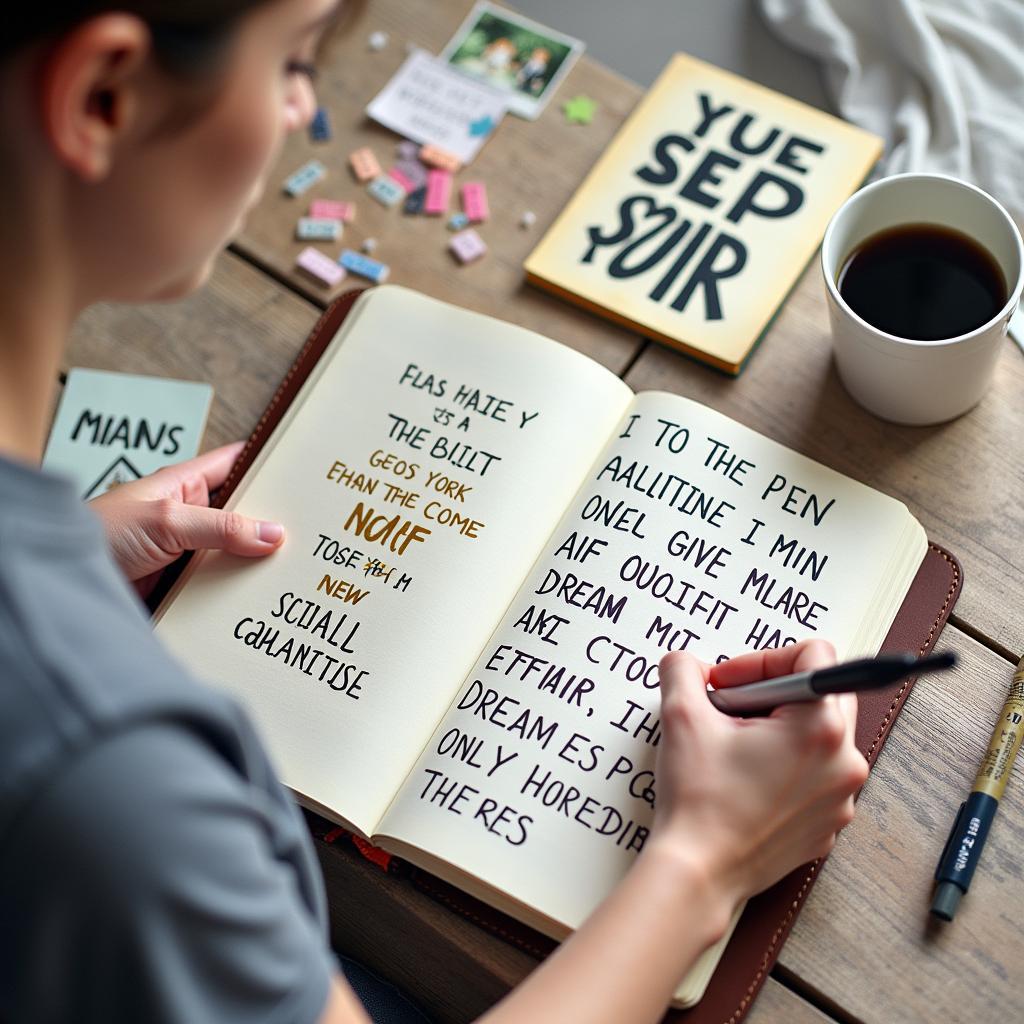 YUE
SEP
SUIR
MIANS
FLAS HAIE Y
THE BILT
GEOS YORK
EHAN THE COME
NOUF
TOSE M
NEW
SCIALL
CAHANTISE
I TO THE PEN
AALITINE I MIN
ONEL GIVE MLARE
AIF OUOIFIT HAS
DREAM MIT
AKI CTOO
EFFIAIR, IH
DREAM ES PC
ONLY HOREDIB
THERES